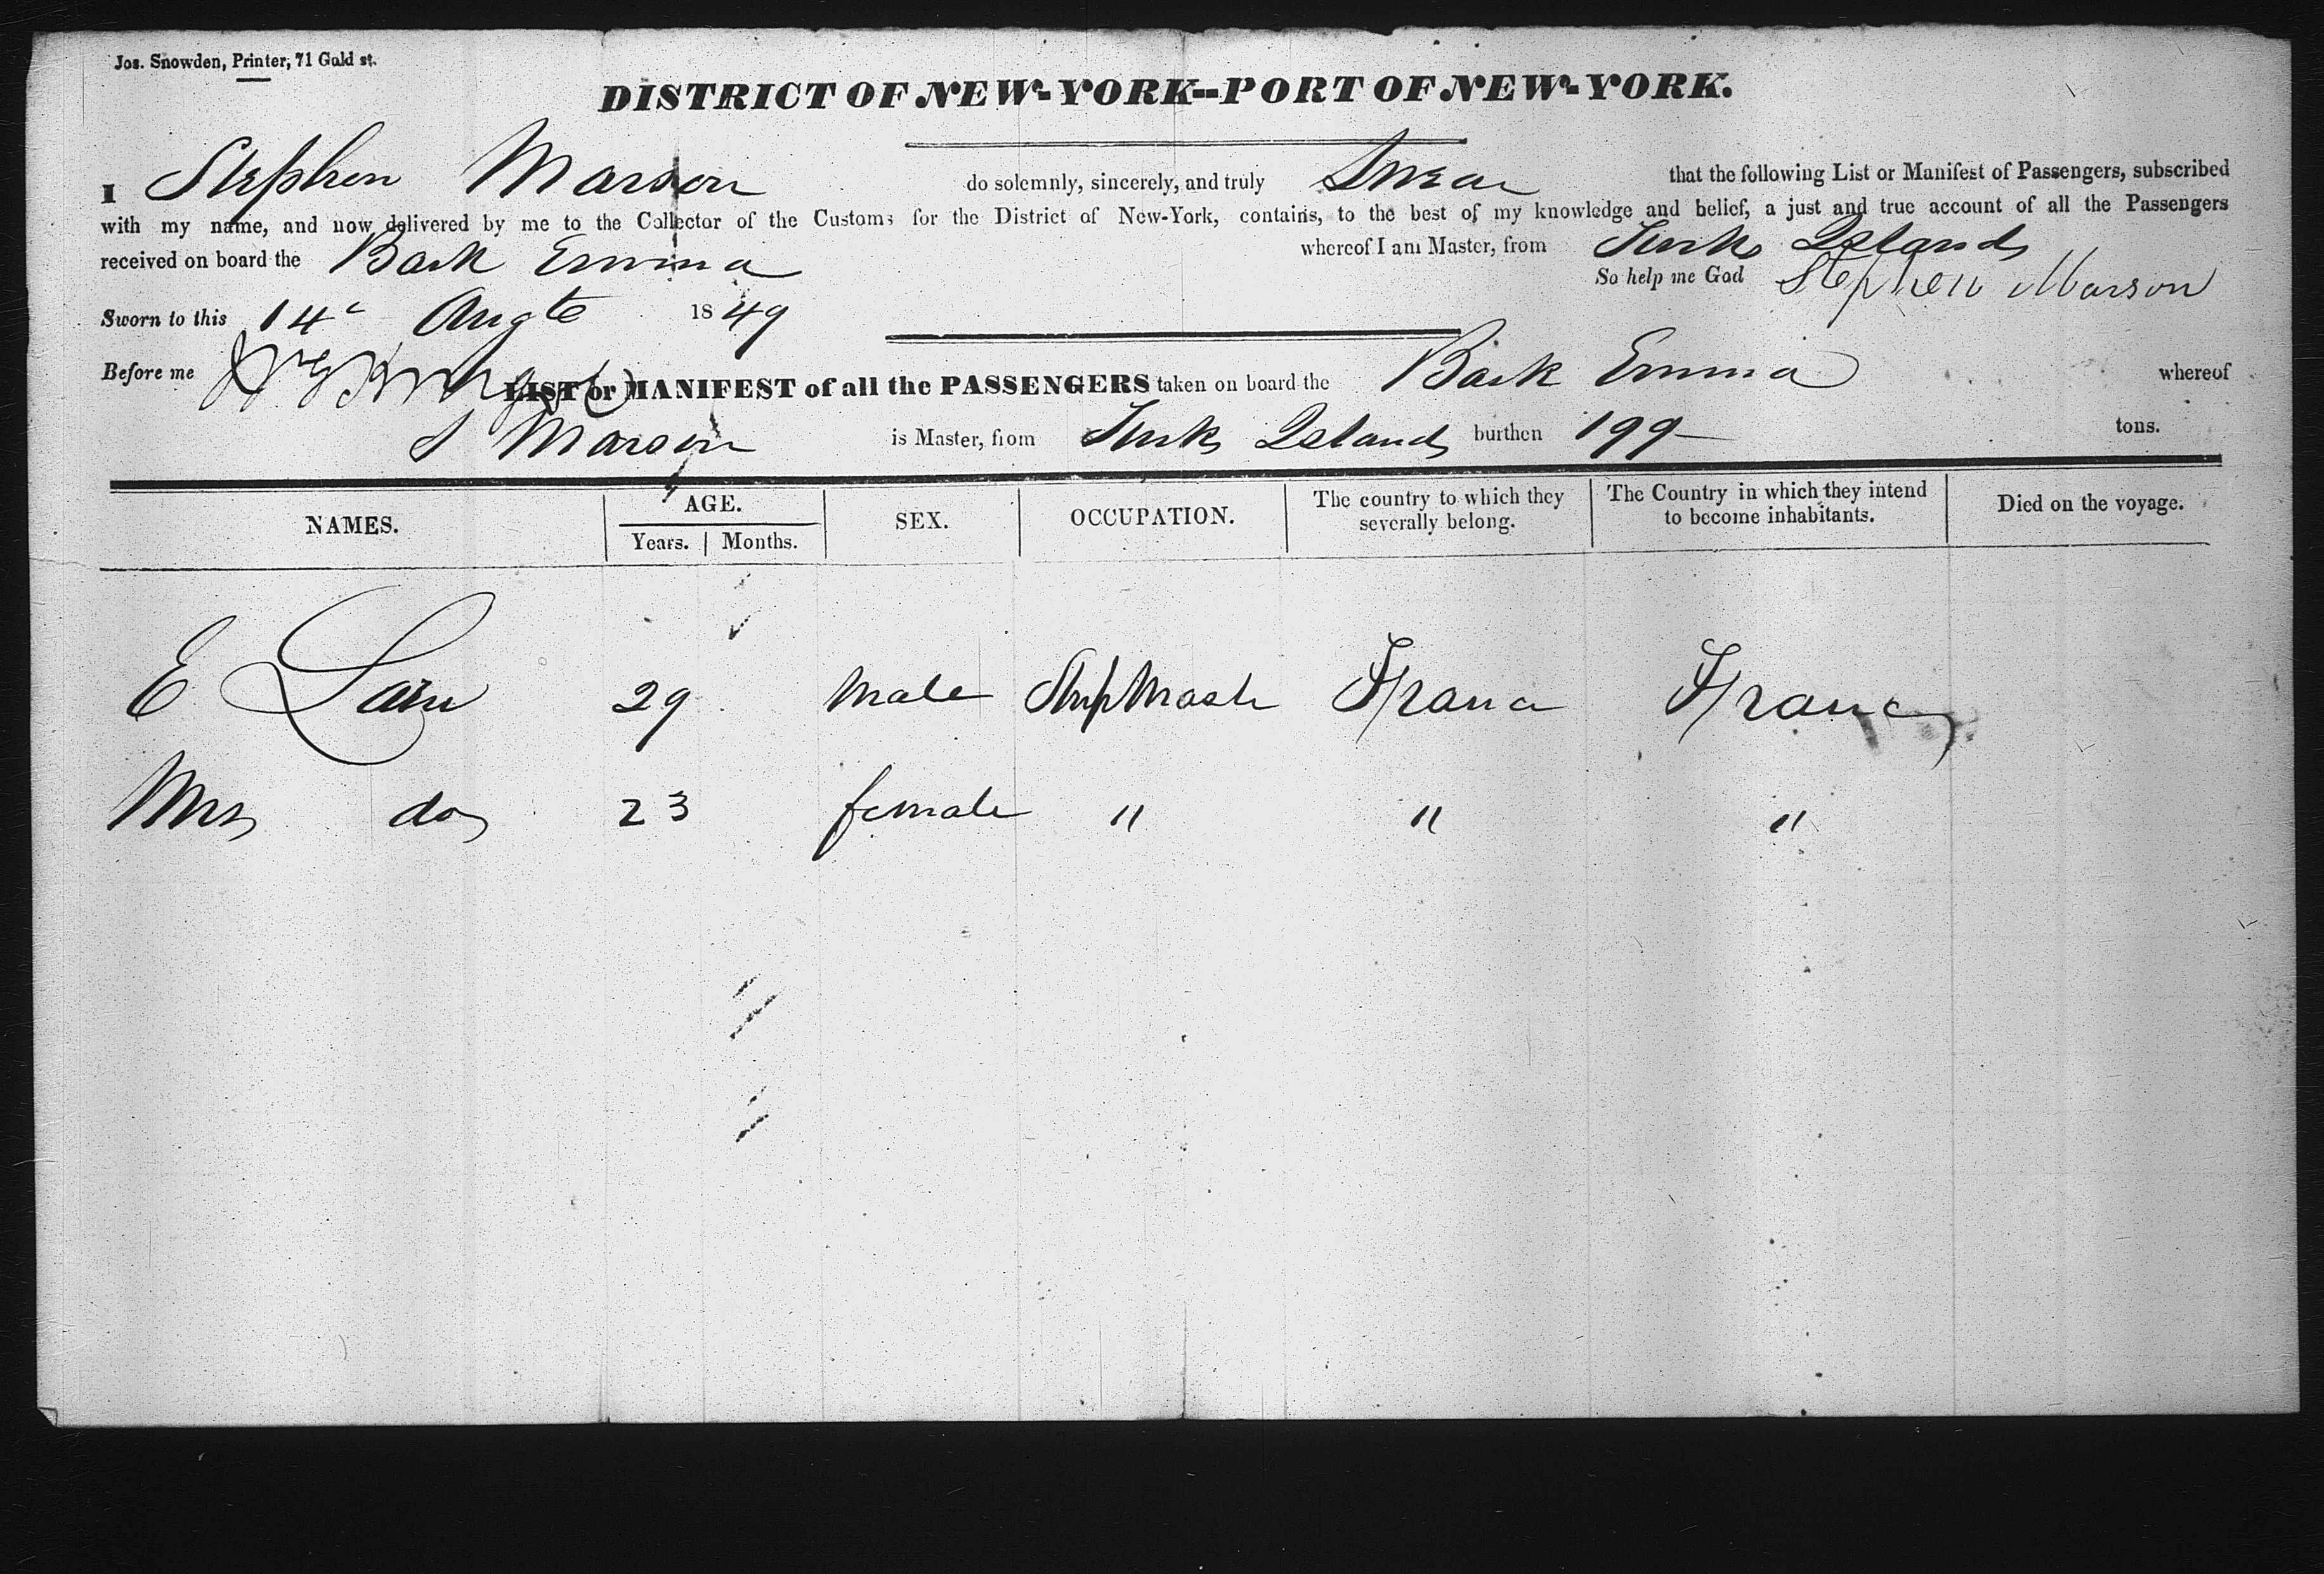 Jos. Snowden, Printer, 71 Gold st.
DISTRICT OF NEW-YORK--PORT OF NEW-YORK.
I Stephen Marson do solemnly, sincerely, and truly Swear that the following List or Manifest of Passengers, subscribed
with my name, and now delivered by me to the Collector of the Customs for the District of New-York, contains, to the best of my knowledge and belief, a just and true account of all the Passengers
received on board the Bark Emma whereof I am Master, from Turks Islands
So help me God Stephen Marson
Sworn to this 14 Augt 1849
Before me
LIST or MANIFEST of all the PASSENGERS taken on board the Bark Emma whereof
S Marson is Master, from Turks Islands burthen 199 tons.
NAMES. AGE. SEX. OCCUPATION. The country to which they severally belong. The Country in which they intend to become inhabitants. Died on the voyage.
Years. Months.
E 29 Male France France
Mrs do 23 female " " "